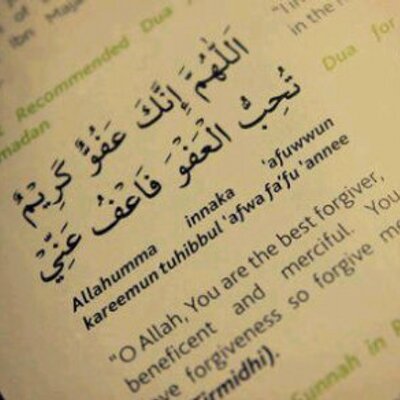 Ibn Maja
"I in
in the H
Recommended Dua
Dua for
madan
اَللّٰهُمَّ إِنَّكَ عَفُوٌّ كَرِيْمٌ
تُحِبُّ الْعَفْوَ فَاعْفُ عَنِّيْ
Allahumma innaka 'afuwwun
kareemun tuhibbul 'afwa fa'fu 'annee
"O Allah, You are the best forgiver,
beneficent and merciful. You
ve forgiveness so forgive me
Tirmidhi).
Sunnah in R